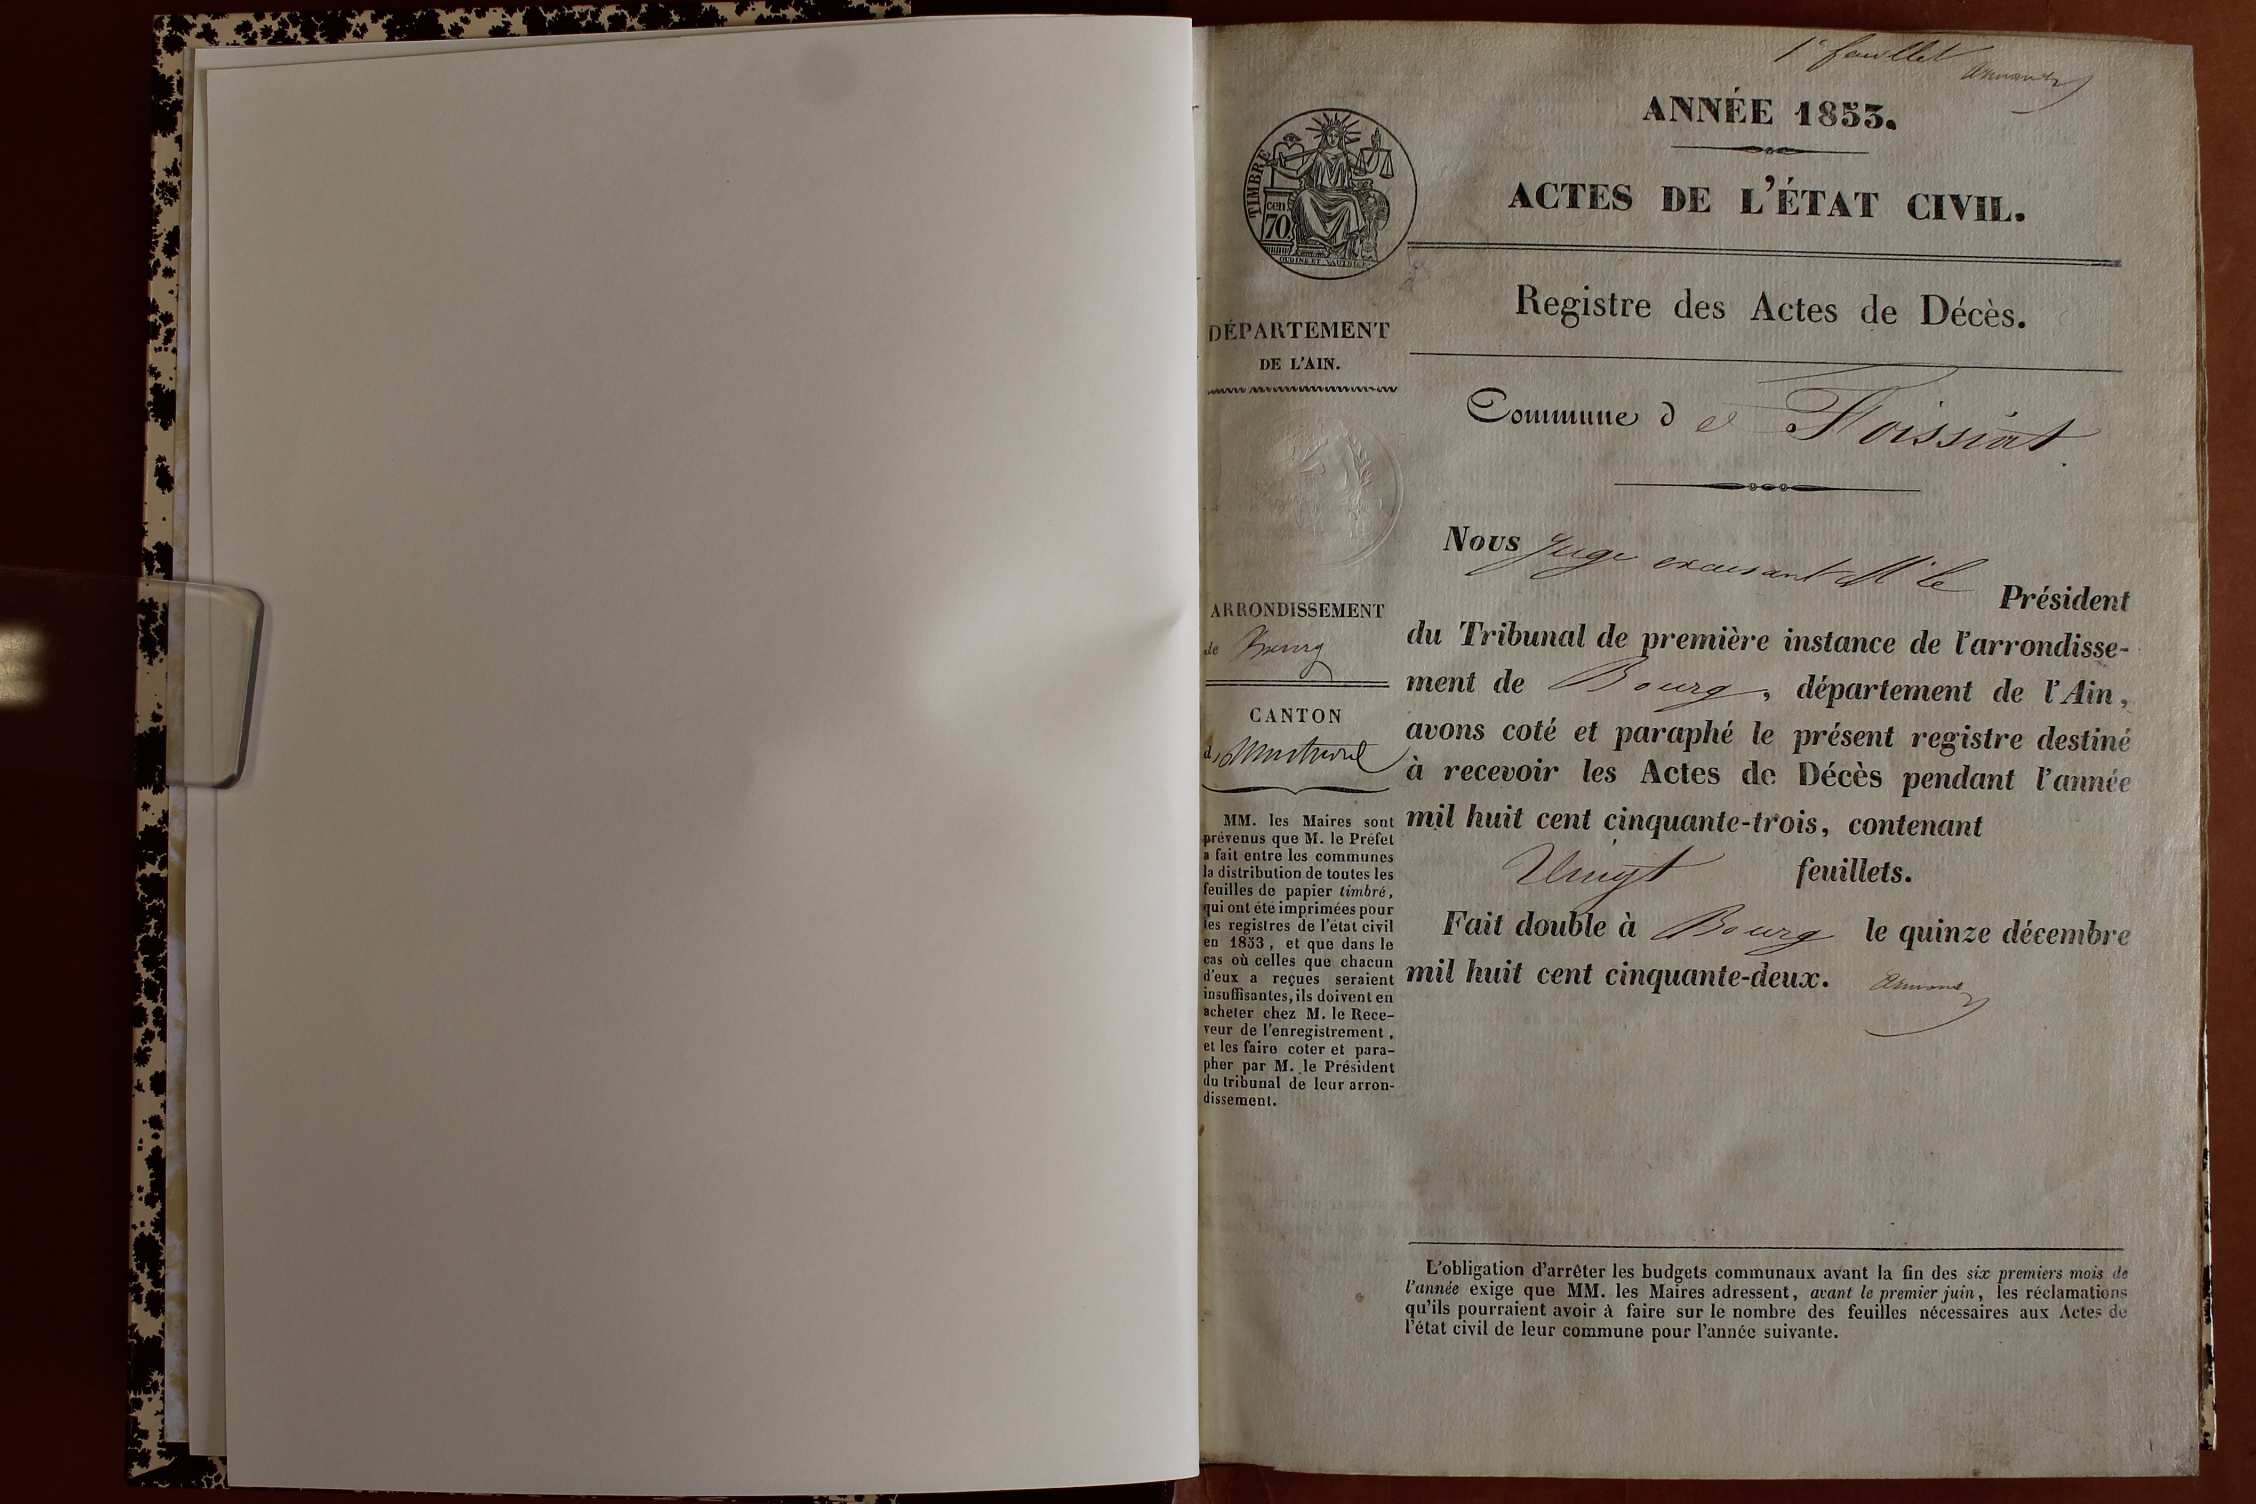 1er feuillet
ANNÉE 1853.
ACTES DE L'ÉTAT CIVIL.
TIMBRE
cen
70
Registre des Actes de Décès.
DÉPARTEMENT
DE L'AIN.
Commune de Foissiat
ARRONDISSEMENT
de Bourg
CANTON
de Montrevel
MM. les Maires sont
prévenus que M. le Préfet
a fait entre les communes
la distribution de toutes les
feuilles de papier timbré,
qui ont été imprimées pour
les registres de l'état civil
en 1853, et que dans le
cas où celles que chacun
d'eux a reçues seraient
insuffisantes, ils doivent en
acheter chez M. le Rece-
veur de l'enregistrement,
et les faire coter et para-
pher par M. le Président
du tribunal de leur arron-
dissement.
Nous Juge excusant Mr le Président
du Tribunal de première instance de l'arrondisse-
ment de Bourg, département de l'Ain,
avons coté et paraphé le présent registre destiné
à recevoir les Actes de Décès pendant l'année
mil huit cent cinquante-trois, contenant
Vingt feuillets.
Fait double à Bourg le quinze décembre
mil huit cent cinquante-deux.
L'obligation d'arrêter les budgets communaux avant la fin des six premiers mois de
l'année exige que MM. les Maires adressent, avant le premier juin, les réclamations
qu'ils pourraient avoir à faire sur le nombre des feuilles nécessaires aux Actes de
l'état civil de leur commune pour l'année suivante.